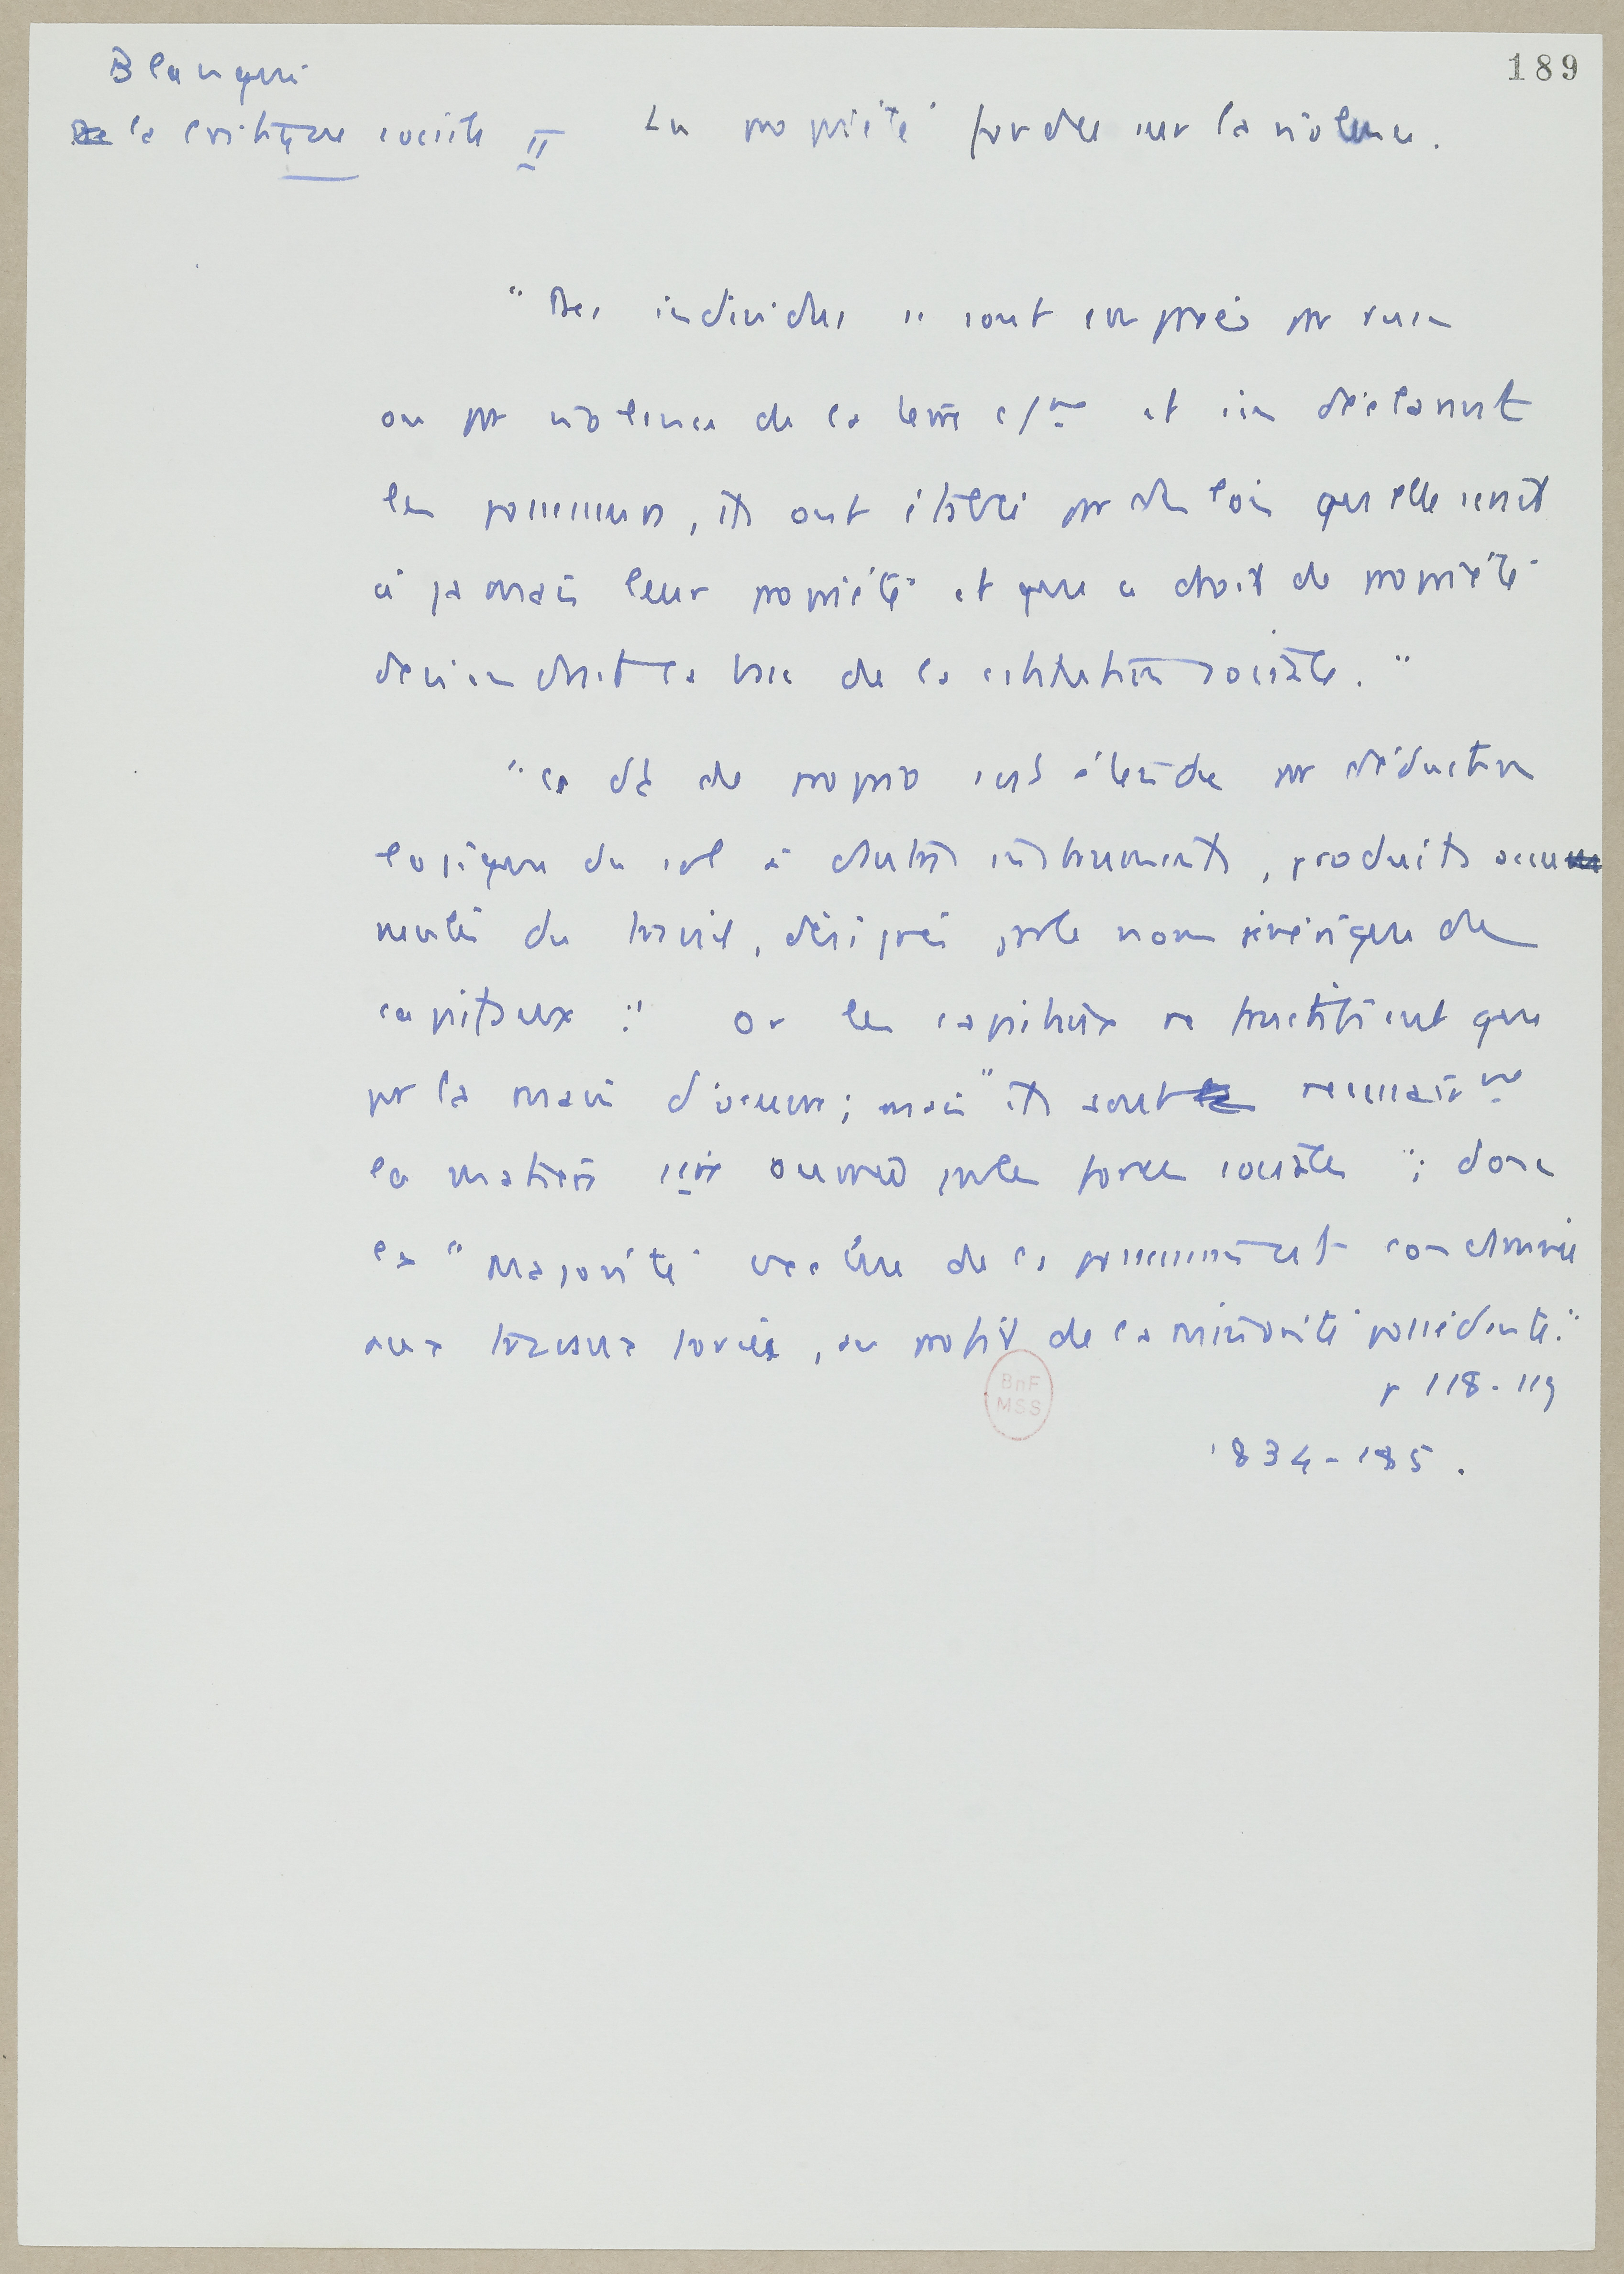 Blanqui
189
la critique sociale II
La propriété fondée sur la violence.
"Des individus se sont emparés par ruse
ou par violence de la terre c/ne et s'en déclarant
les possesseurs, ils ont établi par des lois qu'elle serait
à jamais leur propriété et que ce droit de propriété
deviendrait la base de la constitution sociale."
"Ce dt de propr s'est étendu par déduction
logique du sol à d'autres instruments, produits accu
mulés du travail, désignés par le nom générique de
capitaux". Or les capitaux ne fructifient que
par la main d'œuvre; mais "ils sont nécessairnt
la matière 1ière ouvrée par les forces sociales"; donc
la "majorité exclue de la possession est condamnée
aux travaux forcés, au profit de la minorité possédante."
p 118-119
1834-185.
BnF
MSS